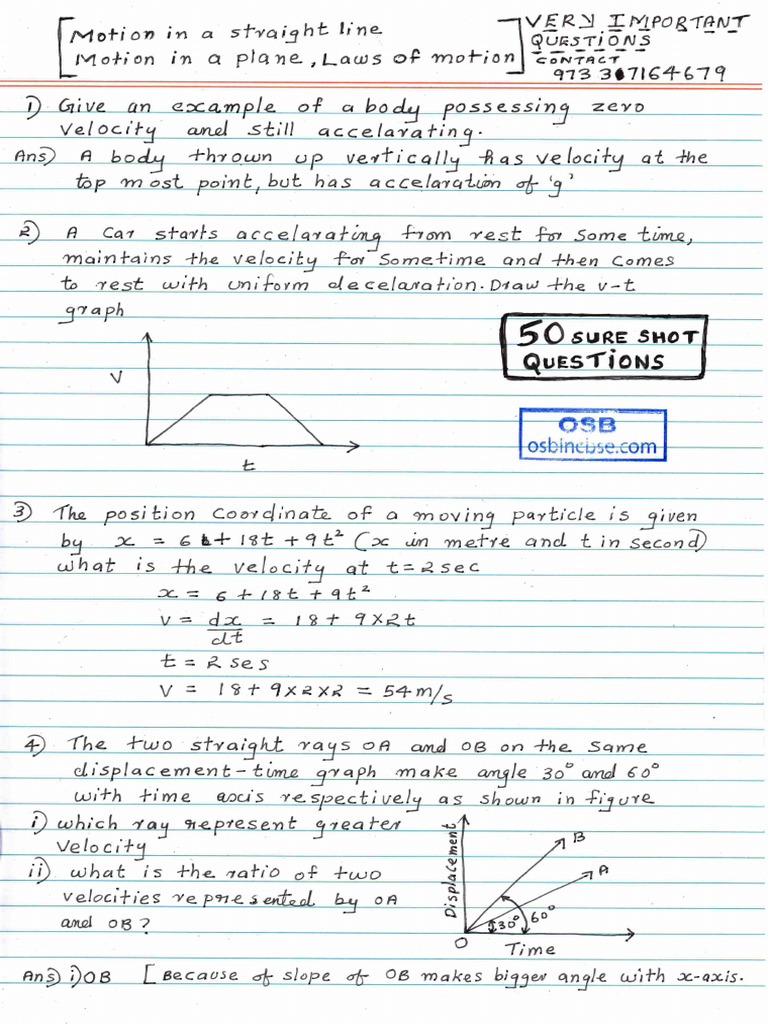 Motion in a straight line
Motion in a plane, Laws of motion
VERY IMPORTANT
QUESTIONS
CONTACT
973 307164679
1) Give an example of a body possessing zero
velocity and still accelarating.
Ans) A body thrown up vertically has velocity at the
top most point, but has accelaration of 'g'
2) A car starts accelarating from rest for some time,
maintains the velocity for sometime and then comes
to rest with uniform decelaration. Draw the v-t
graph
50 SURE SHOT
QUESTIONS
V
t
OSB
osbincbse.com
3) The position coordinate of a moving particle is given
by x = 6 + 18t + 9t² (x in metre and t in second)
what is the velocity at t = 2 sec
x = 6 + 18t + 9t²
v = dx/dt = 18 + 9×2t
t = 2 ses
V = 18 + 9×2×2 = 54 m/s
4) The two straight rays OA and OB on the same
displacement-time graph make angle 30° and 60°
with time axis respectively as shown in figure
i) which ray represent greater
velocity
ii) what is the ratio of two
velocities represented by OA
and OB?
Displacement
B
A
30°
60°
O
Time
Ans) i) OB [Because of slope of OB makes bigger angle with x-axis.